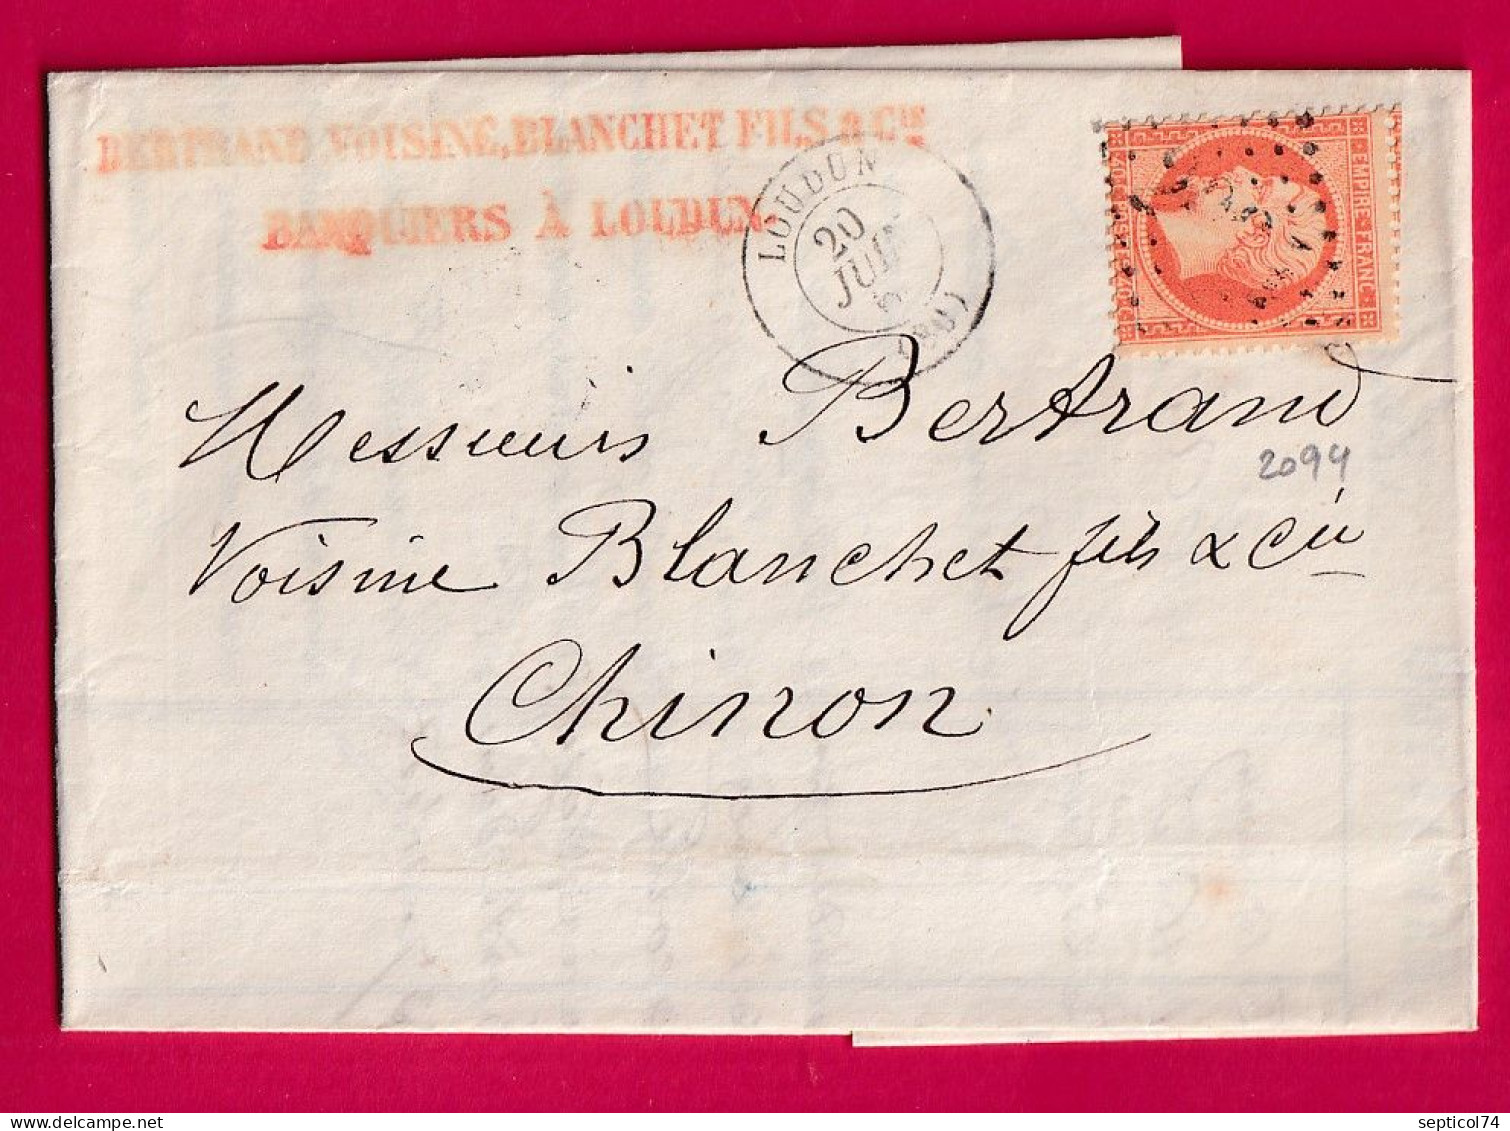 BERTRAND VOISINE, BLANCHET FILS & CIE
BANQUIERS À LOUDUN.
LOUDUN
20
JUIN
(80)
EMPIRE FRANC
40 C POSTES 40 C
Messieurs Bertrand
2094
Voisine Blanchet fils & Cie
Chinon
septicol74